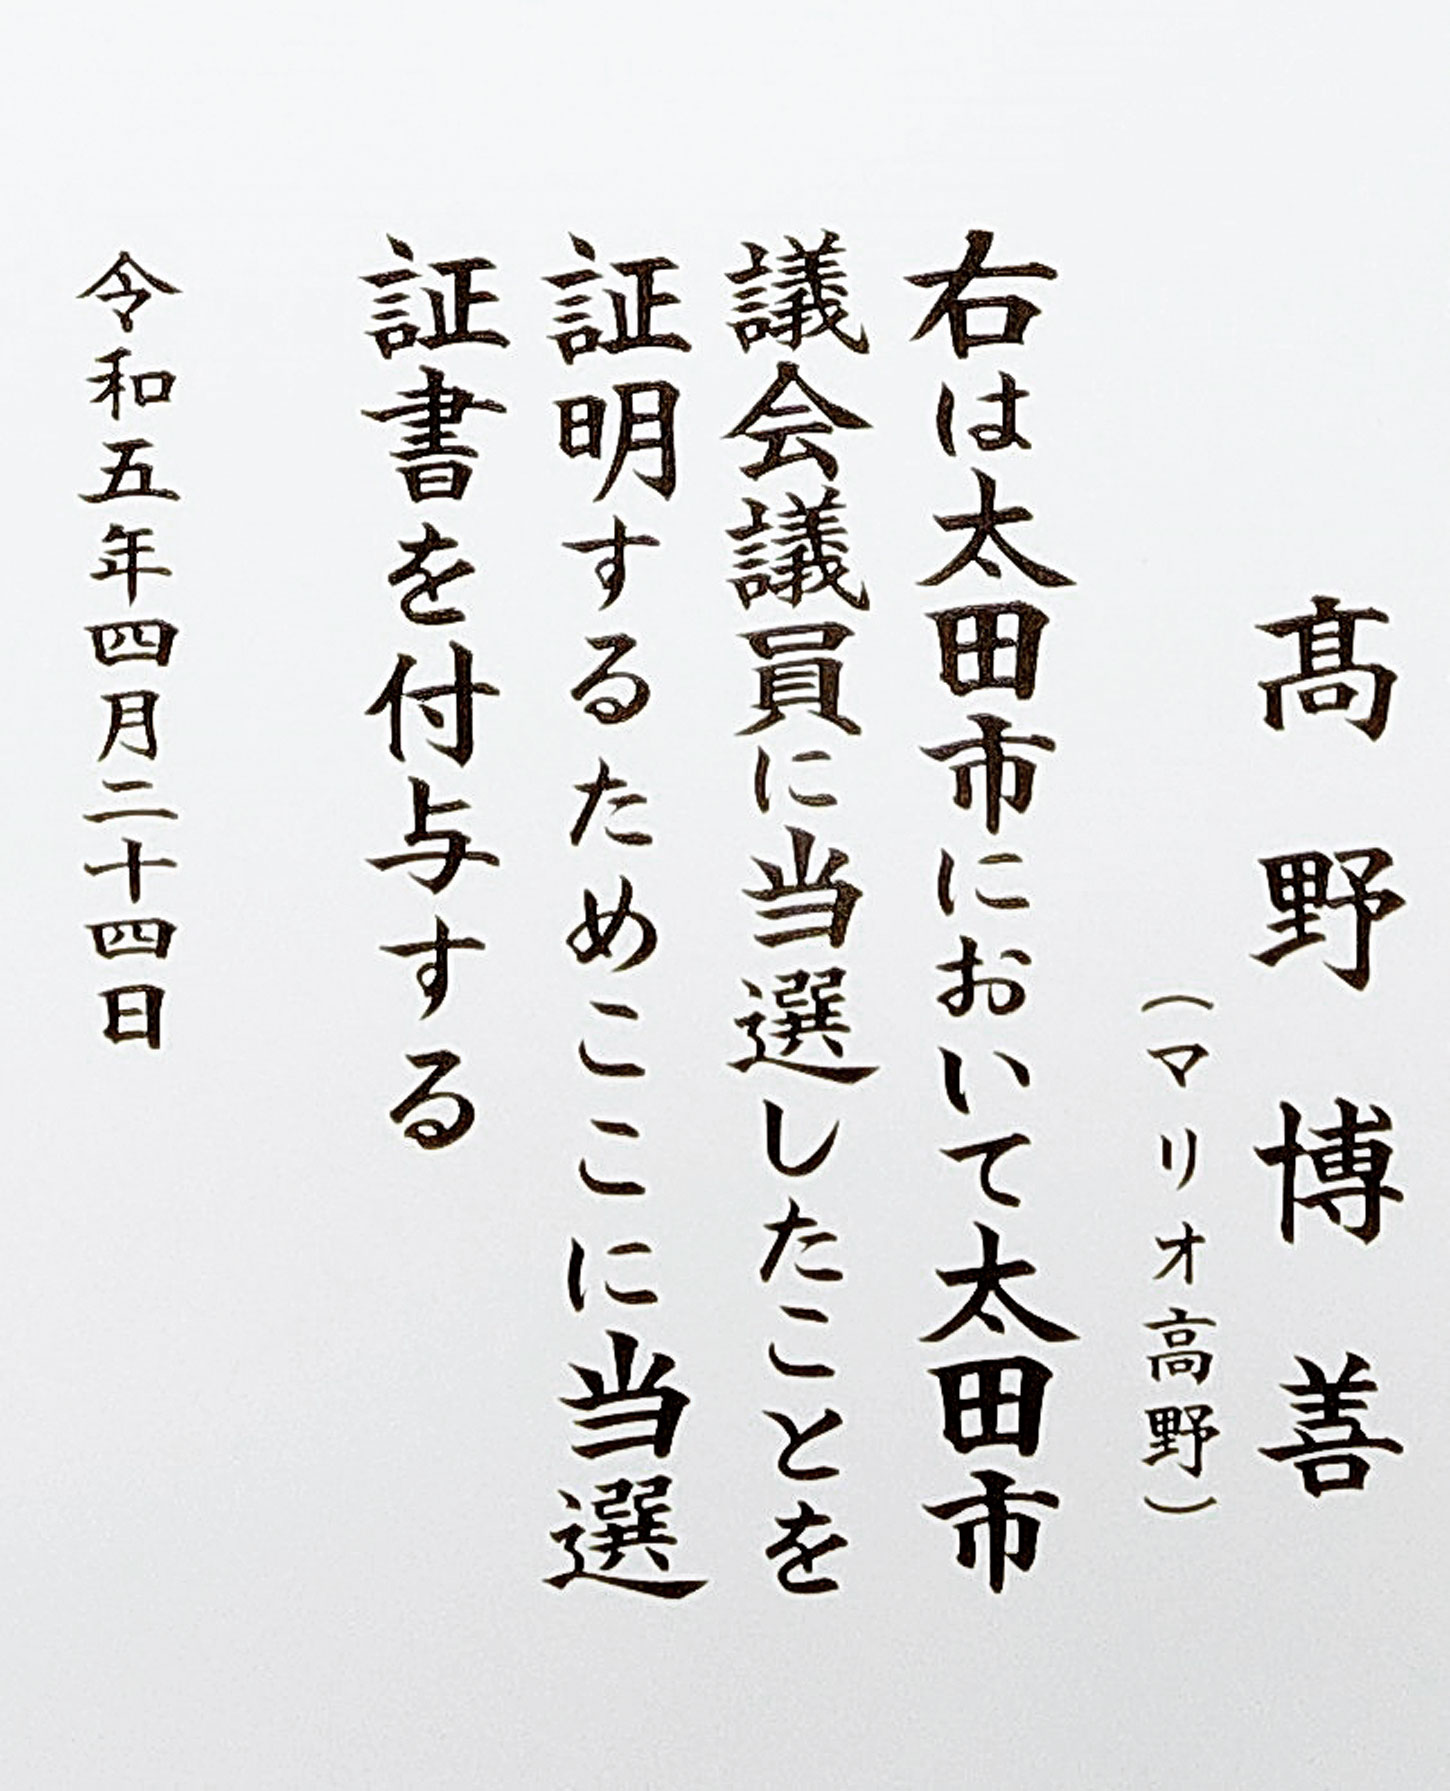 髙野博善
（マリオ高野）
右は太田市において太田市
議会議員に当選したことを
証明するためここに当選
証書を付与する
令和五年四月二十四日